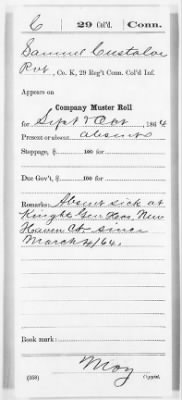 C | 29 Col'd. | Conn.
Samuel Custalow
Pvt, Co. K, 29 Reg't Conn. Col'd Inf.
Appears on
Company Muster Roll
for Sept & Oct, 1864
Present or absent Absent
Stoppage, $ 100 for
Due Gov't, $ 100 for
Remarks: Absent sick at
Knight Gen Hos. New
Haven Ct. since
March 4/64.
Book mark:
May
(358) Copyist.